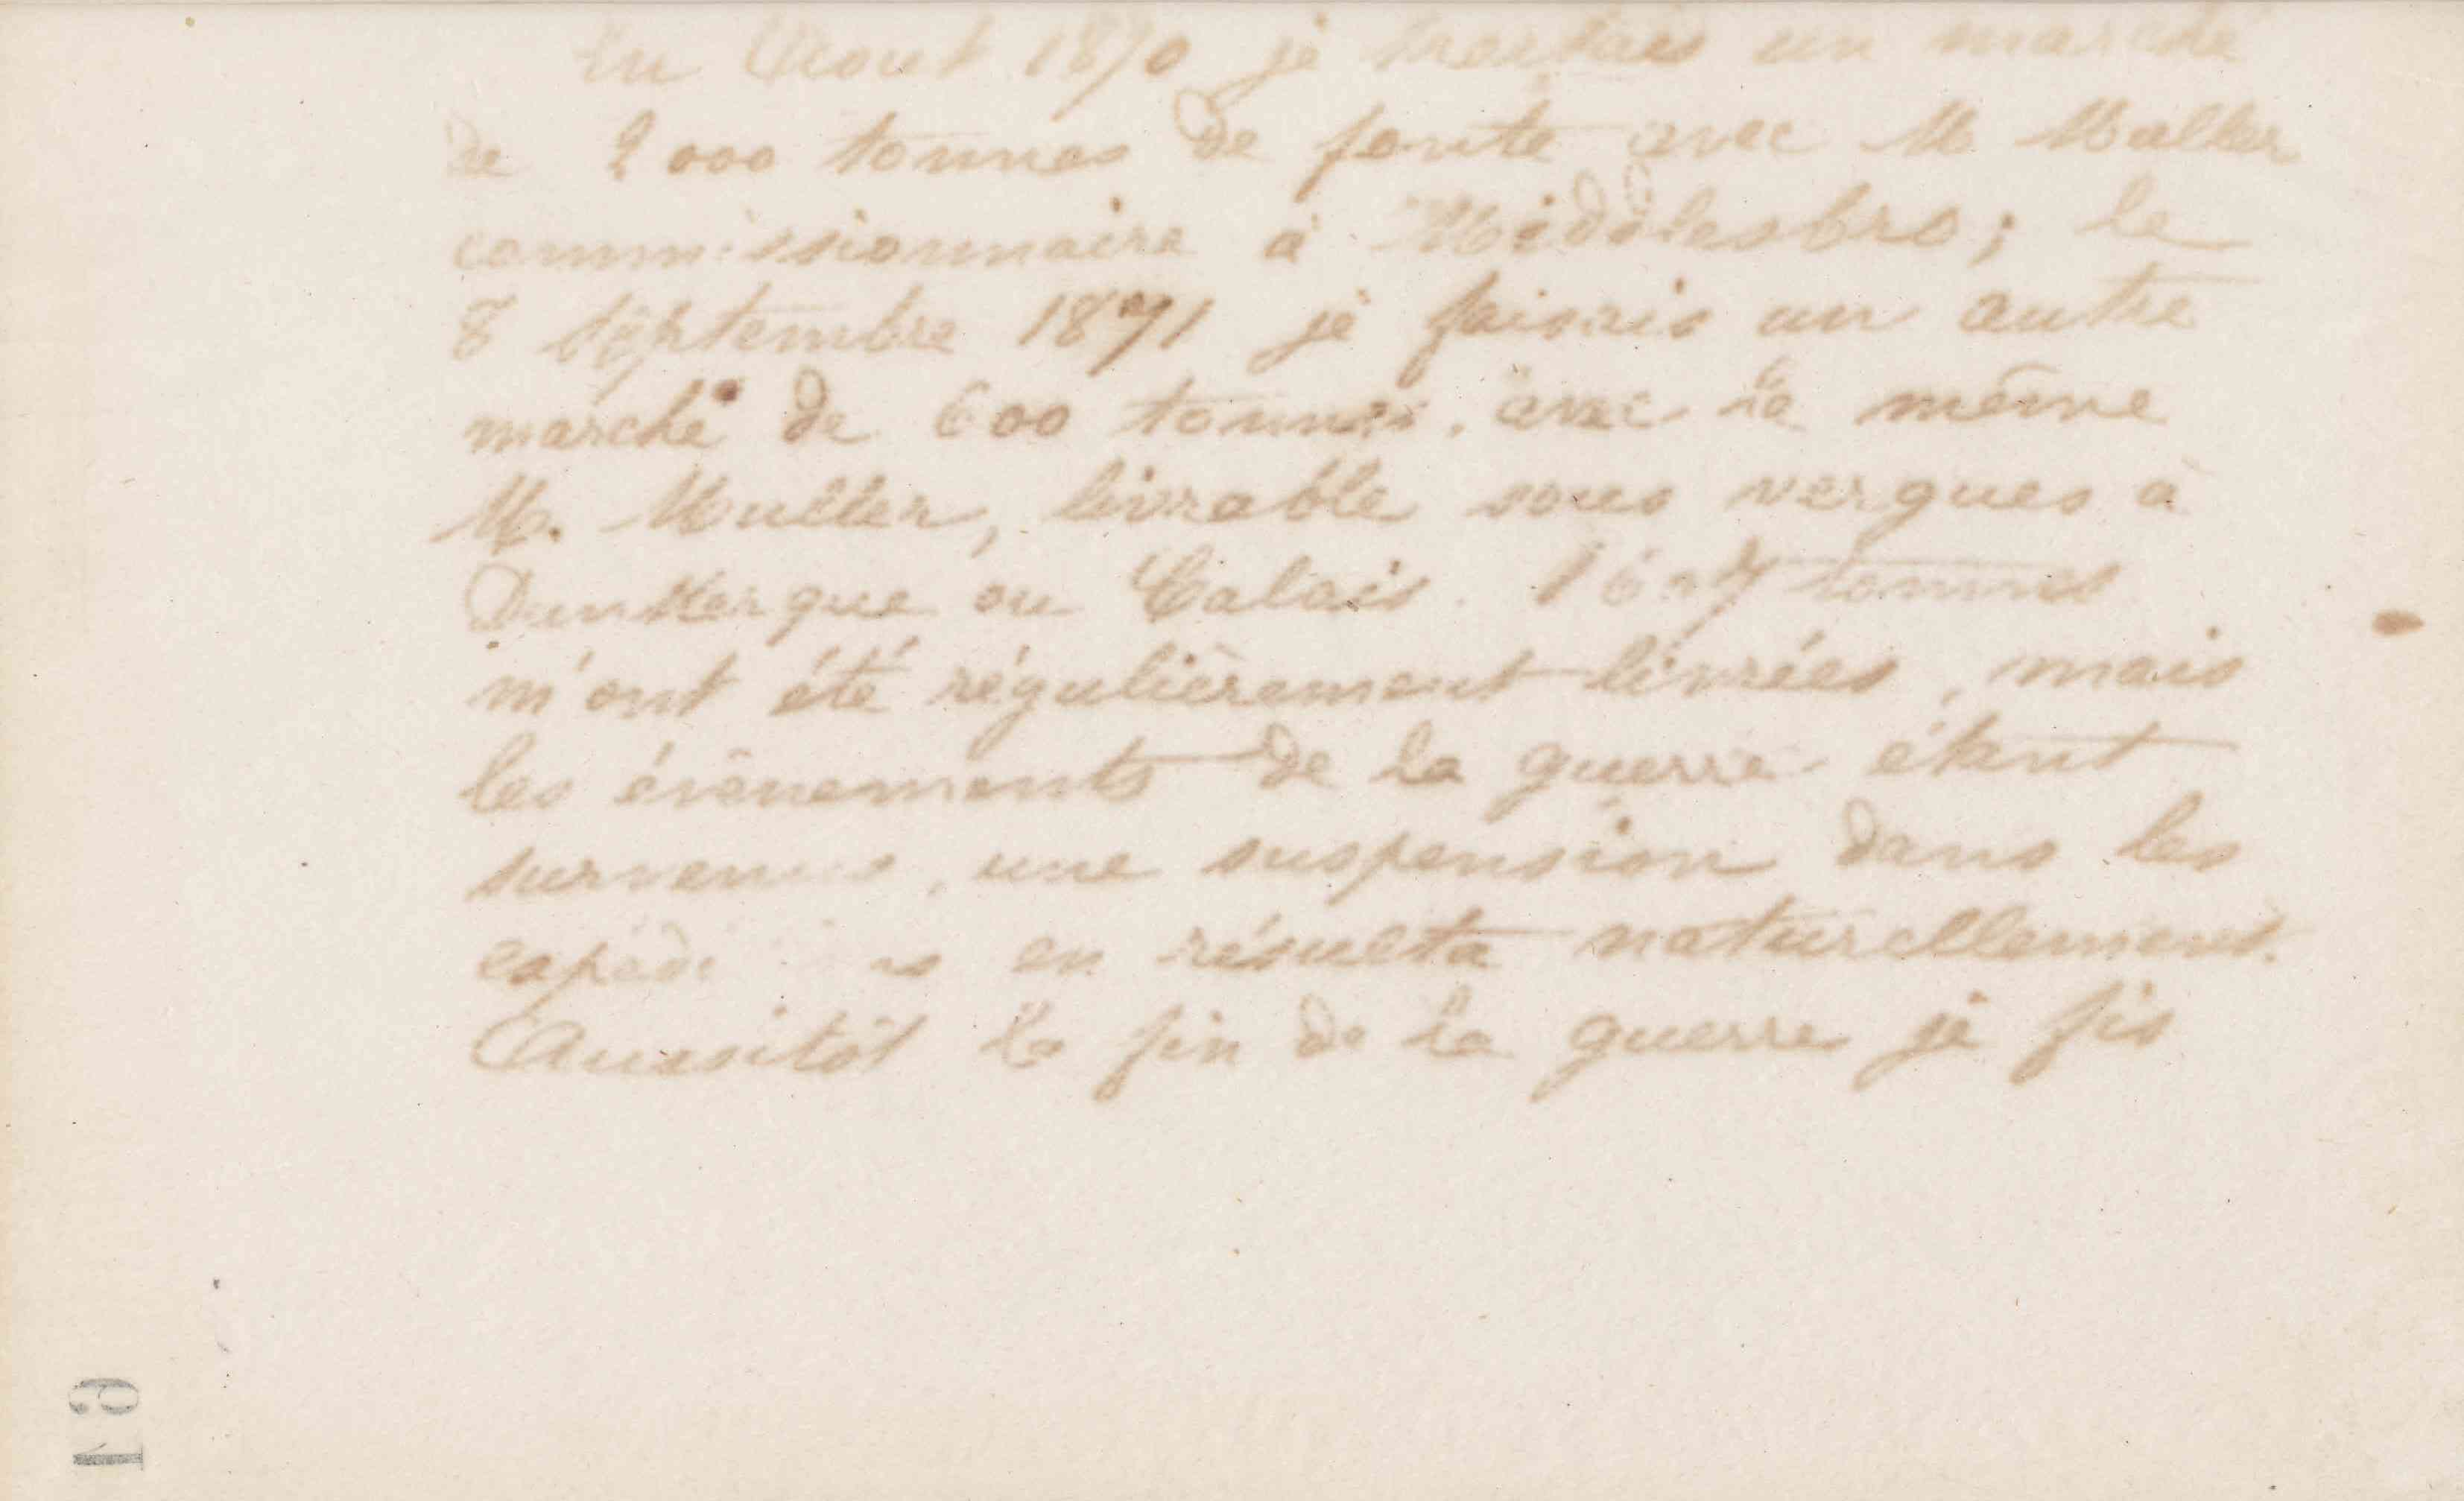 En Août 1870 je traitais un marché
de 2000 tonnes de fonte avec M Muller
commissionnaire à Middlesbro; le
8 Septembre 1871 je faisais un autre
marché de 600 tonnes avec le même
M. Muller, livrable sous vergues à
Dunkerque ou Calais. tonnes
m'ont été régulièrement livrées, mais
les évènements de la guerre étant
survenus, une suspension dans les
en résulta naturellement.
Aussitôt la fin de la guerre je fis
19